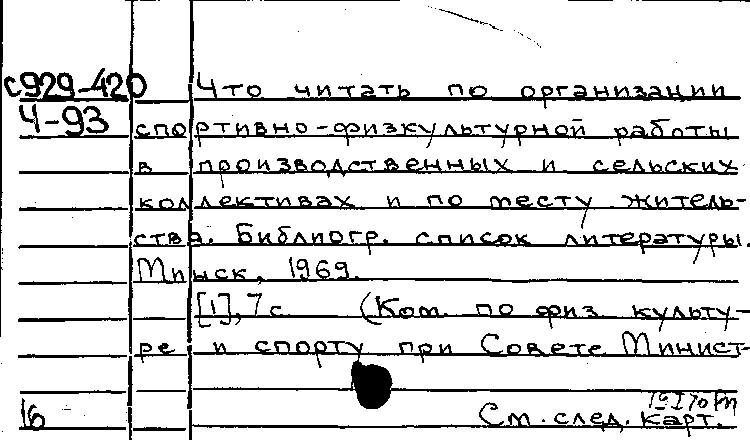 с929-420 Что читать по организации
Ч-93 спортивно-физкультурной работы
в производственных и сельских
коллективах и по месту житель-
ства. Библиогр. список литературы.
Минск, 1969.
[1], 7 с (Ком. по физ культу-
ре и спорту при Совете Минист-
16 См. след. карт.